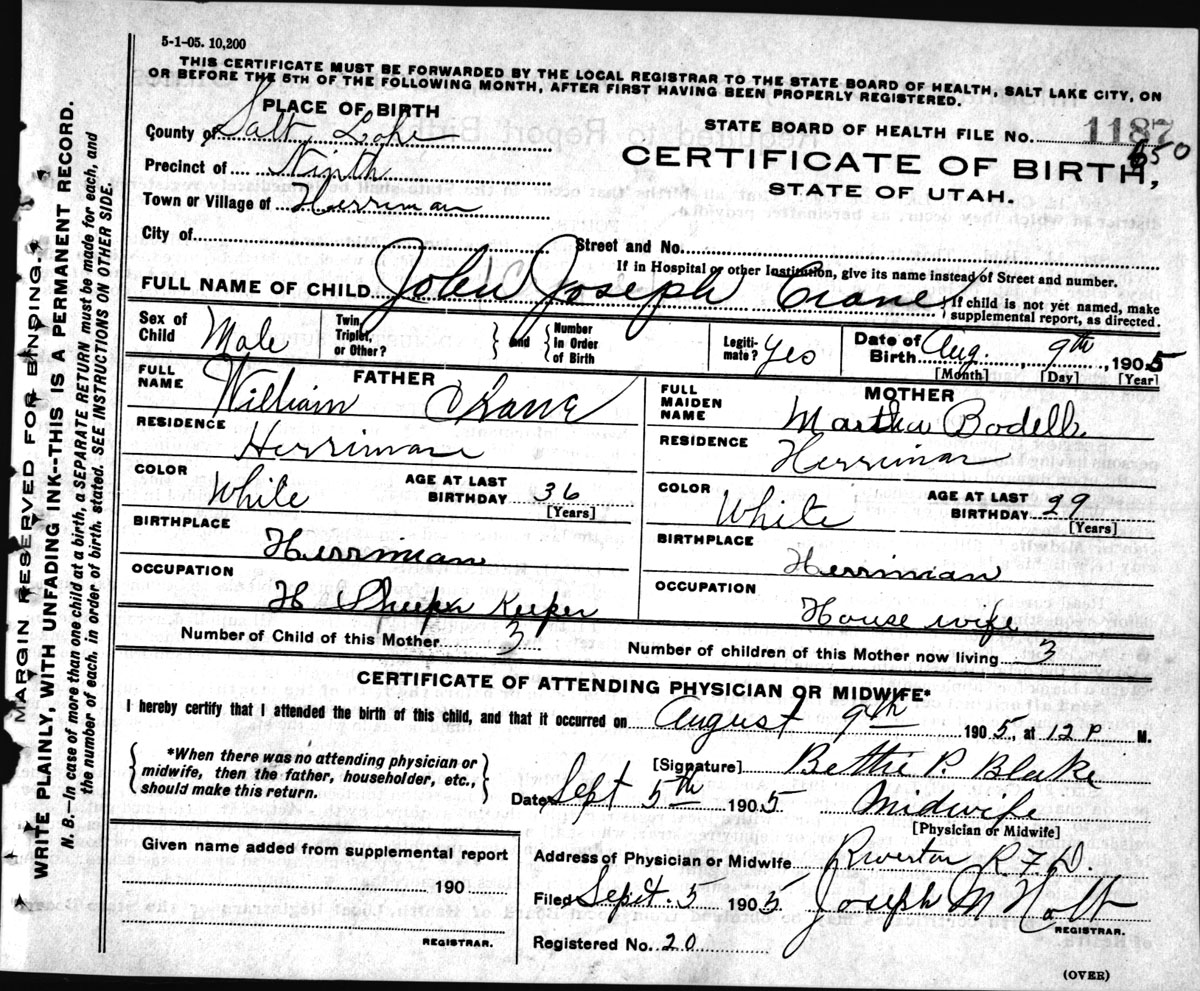 5-1-05. 10,200
THIS CERTIFICATE MUST BE FORWARDED BY THE LOCAL REGISTRAR TO THE STATE BOARD OF HEALTH, SALT LAKE CITY, ON
OR BEFORE THE 5TH OF THE FOLLOWING MONTH, AFTER FIRST HAVING BEEN PROPERLY REGISTERED.
PLACE OF BIRTH
STATE BOARD OF HEALTH FILE No. 1187
650
County of Salt Lake
CERTIFICATE OF BIRTH,
STATE OF UTAH.
Precinct of Ninth
Town or Village of Herriman
City of Street and No.
If in Hospital or other Institution, give its name instead of Street and number.
FULL NAME OF CHILD John Joseph Crane
{If child is not yet named, make
supplemental report, as directed.
Sex of Child Male
Twin, Triplet, or Other? } and { Number in Order of Birth
Legitimate? Yes
Date of Birth Aug. 9th, 1905
[Month] [Day] [Year]
FATHER
FULL NAME William Crane
RESIDENCE Herriman
COLOR White
AGE AT LAST BIRTHDAY 36
[Years]
BIRTHPLACE Herrman
OCCUPATION H Sheeph Keeper
MOTHER
FULL MAIDEN NAME Martha Bodell
RESIDENCE Herriman
COLOR White
AGE AT LAST BIRTHDAY 29
[Years]
BIRTHPLACE Herriman
OCCUPATION House wife
Number of Child of this Mother 3 Number of children of this Mother now living 3
CERTIFICATE OF ATTENDING PHYSICIAN OR MIDWIFE*
I hereby certify that I attended the birth of this child, and that it occurred on August 9th 1905, at 12 P M.
{ *When there was no attending physician or
midwife, then the father, householder, etc.,
should make this return. }
[Signature] Bettie P. Blake
Date Sept 5th 1905 Midwife
[Physician or Midwife]
Given name added from supplemental report
190
REGISTRAR.
Address of Physician or Midwife Riverton R F D.
Filed Sept. 5 1905 Joseph M Holt
REGISTRAR.
Registered No. 20
(OVER)
MARGIN RESERVED FOR BINDING.
WRITE PLAINLY, WITH UNFADING INK--THIS IS A PERMANENT RECORD.
N. B.—In case of more than one child at a birth, a SEPARATE RETURN must be made for each, and
the number of each, in order of birth, stated. SEE INSTRUCTIONS ON OTHER SIDE.